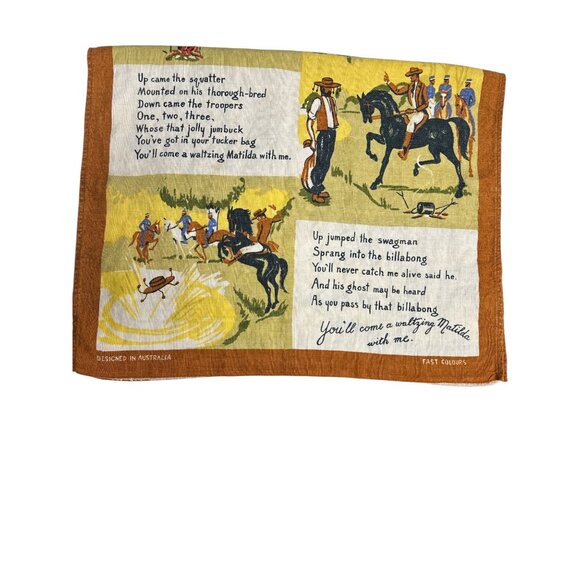 Up came the squatter
Mounted on his thorough-bred
Down came the troopers
One, two, three,
Whose that jolly jumbuck
You've got in your tucker bag
You'll come a waltzing Matilda with me.
Up jumped the swagman
Sprang into the billabong
You'll never catch me alive said he.
And his ghost may be heard
As you pass by that billabong
You'll come a waltzing Matilda
with me.
DESIGNED IN AUSTRALIA
FAST COLOURS